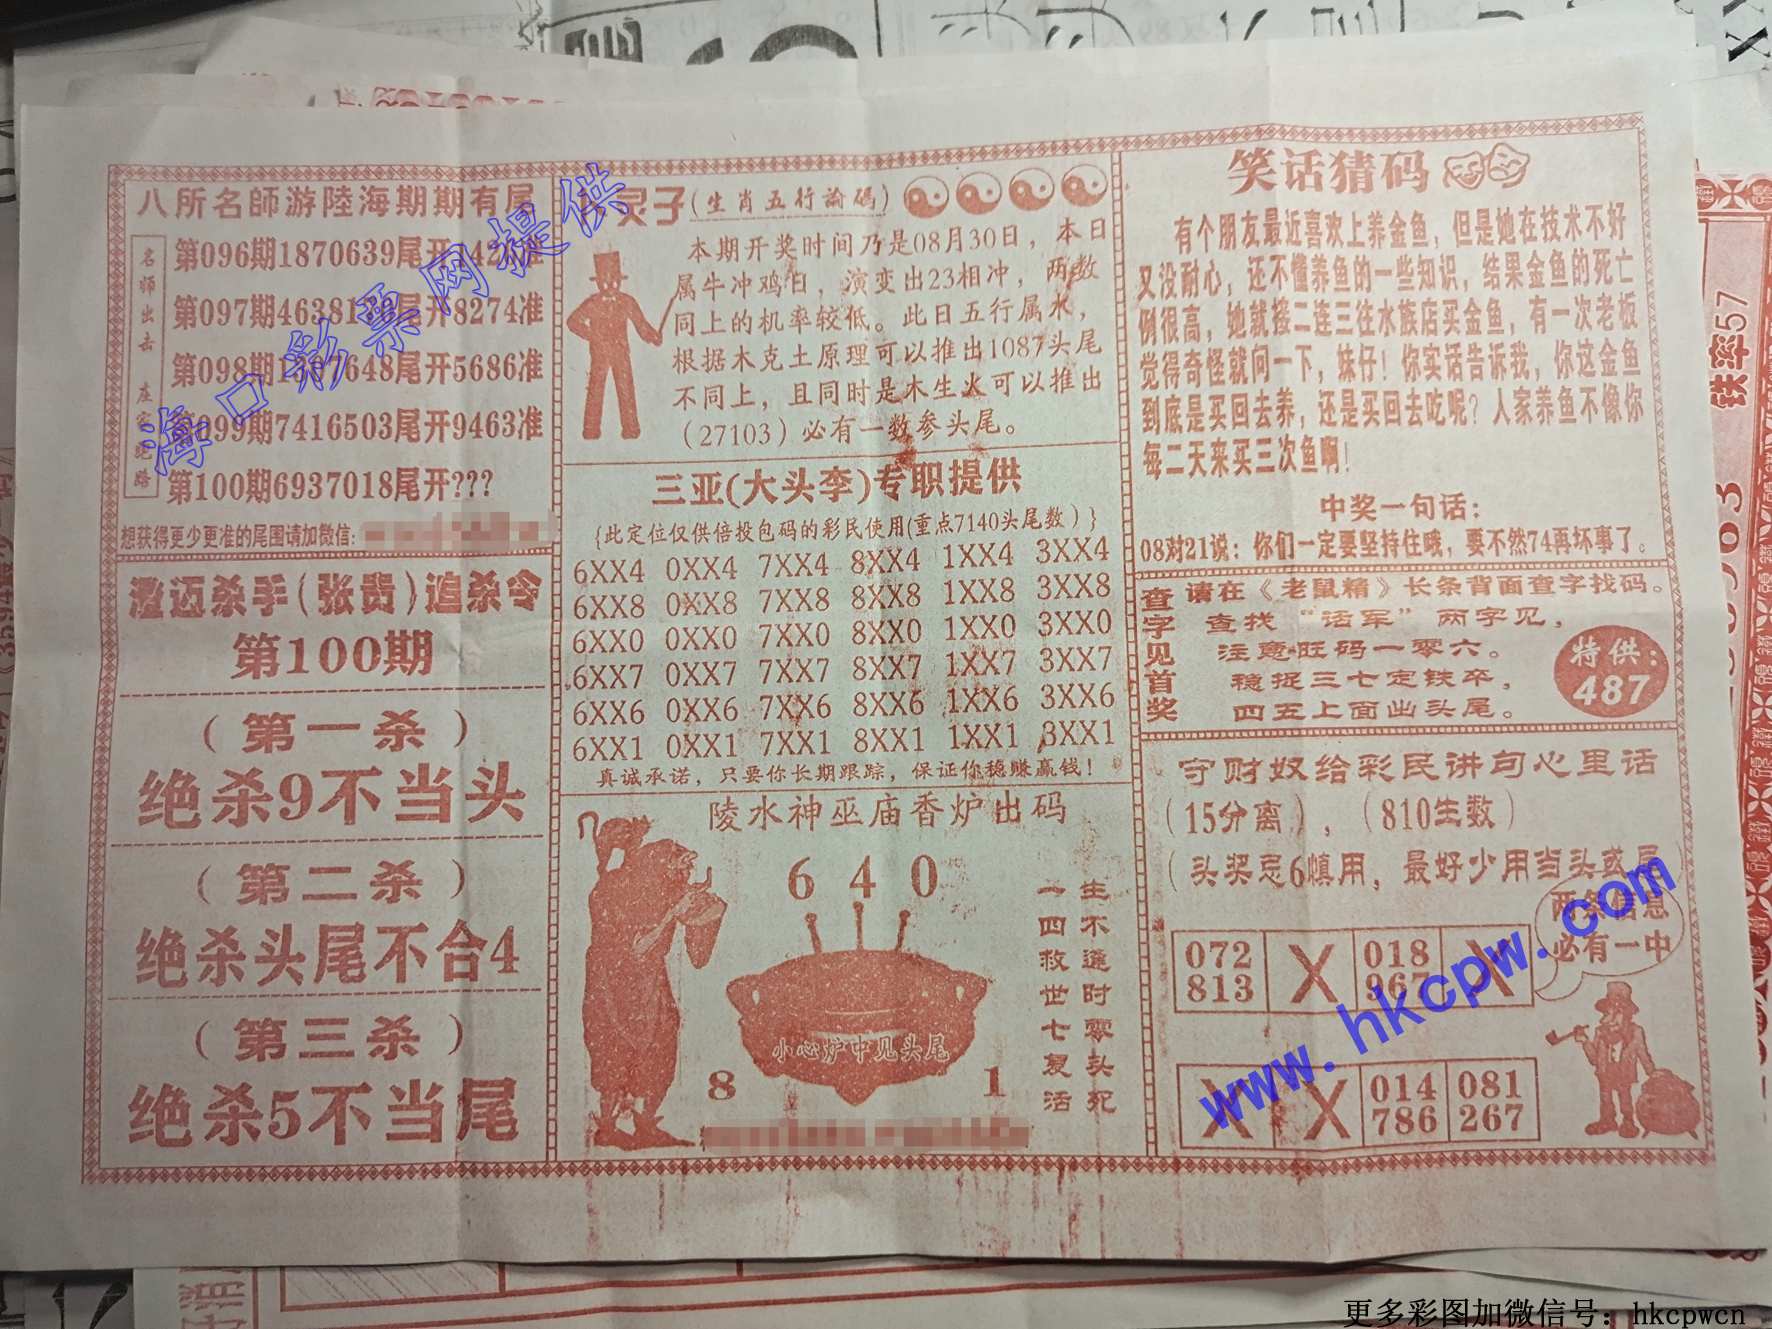 八所名師游陸海期期有尾
名师出击 庄家绝路
第096期1870639尾开
准
第097期46381
尾开8274准
第098期1
7648尾开5686准
099期7416503尾开9463准
第100期6937018尾开???
想获得更少更准的尾围请加微信:
澄迈杀手(张贵)追杀令
第100期
(第一杀)
绝杀9不当头
(第二杀)
绝杀头尾不合4
(第三杀)
绝杀5不当尾
灵子(生肖五行論码)
本期开奖时间乃是08月30日，本日
属牛冲鸡日，演变出23相冲，两数
同上的机率较低。此日五行属水，
根据木克土原理可以推出1087头尾
不同上，且同时是木生火可以推出
(27103)必有一数参头尾。
三亚(大头李)专职提供
{此定位仅供倍投包码的彩民使用(重点7140头尾数)}
6XX4 0XX4 7XX4 8XX4 1XX4 3XX4
6XX8 0XX8 7XX8 8XX8 1XX8 3XX8
6XX0 0XX0 7XX0 8XX0 1XX0 3XX0
6XX7 0XX7 7XX7 8XX7 1XX7 3XX7
6XX6 0XX6 7XX6 8XX6 1XX6 3XX6
6XX1 0XX1 7XX1 8XX1 1XX1 3XX1
真诚承诺，只要你长期跟踪，保证你稳赚赢钱!
陵水神巫庙香炉出码
6 4 0
小心炉中见头尾
8 1
生不逢时零头死
一四救世七复活
笑话猜码
有个朋友最近喜欢上养金鱼，但是她在技术不好
又没耐心，还不懂养鱼的一些知识，结果金鱼的死亡
例很高，她就接二连三往水族店买金鱼，有一次老板
觉得奇怪就问一下，妹仔！你实话告诉我，你这金鱼
到底是买回去养，还是买回去吃呢？人家养鱼不像你
每二天来买三次鱼啊！
中奖一句话：
08对21说：你们一定要坚持住哦，要不然74再坏事了。
查字见首奖
请在《老鼠精》长条背面查字找码。
查找“话军”两字见，
注意旺码一零六。
稳捉三七定铁卒，
四五上面出头尾。
特供：
487
守财奴给彩民讲句心里话
(15分离)，(810生数)
(头奖忌6慎用，最好少用当头或尾)
两条信息
必有一中
072 X 018 X
813 967
X X 014 081
786 267
海口彩票网提供
www.hkcpw.com
铁率57
更多彩图加微信号：hkcpwcn